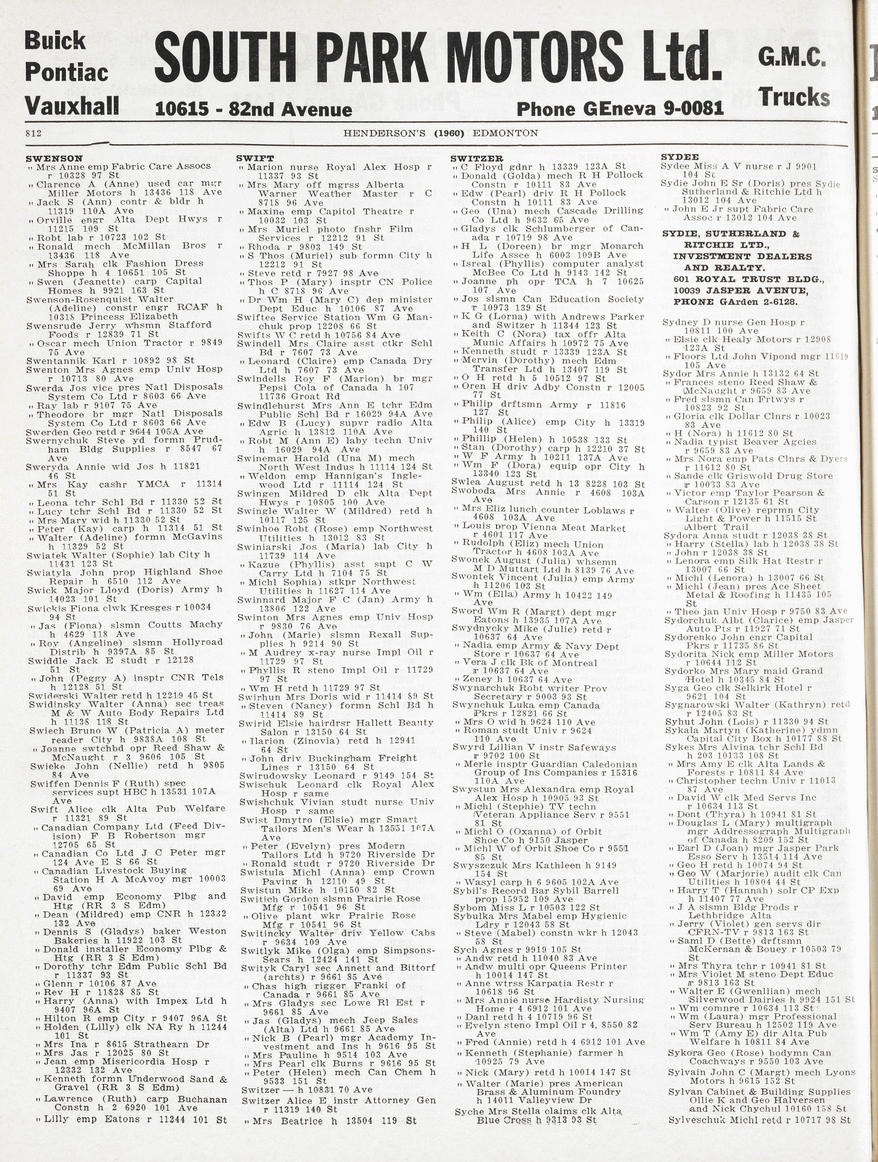 Buick
Pontiac
Vauxhall
SOUTH PARK MOTORS Ltd.
10615 - 82nd Avenue
Phone GEneva 9-0081
G.M.C.
Trucks
812
HENDERSON'S (1960) EDMONTON
SWENSON
" Mrs Anne emp Fabric Care Assocs
r 10328 97 St
" Clarence A (Anne) used car mgr
Miller Motors h 13436 118 Ave
" Jack S (Ann) contr & bldr h
11319 110A Ave
" Orville engr Alta Dept Hwys r
11215 109 St
" Robt lab r 10723 102 St
" Ronald mech McMillan Bros r
13436 118 Ave
" Mrs Sarah clk Fashion Dress
Shoppe h 4 10651 105 St
" Swen (Jeanette) carp Capital
Homes h 9921 163 St
Swenson-Rosenquist Walter
(Adeline) constr engr RCAF h
10318 Princess Elizabeth
Swensrude Jerry whsmn Stafford
Foods r 12839 71 St
" Oscar mech Union Tractor r 9849
75 Ave
Swentannik Karl r 10892 98 St
Swenton Mrs Agnes emp Univ Hosp
r 10713 80 Ave
Swerda Jos vice pres Natl Disposals
System Co Ltd r 8603 66 Ave
" Ray lab r 9107 75 Ave
" Theodore br mgr Natl Disposals
System Co Ltd r 8603 66 Ave
Swerden Geo retd r 9644 105A Ave
Swernychuk Steve yd formn Prud-
ham Bldg Supplies r 8547 67
Ave
Sweryda Annie wid Jos h 11821
46 St
" Mrs Kay cashr YMCA r 11314
51 St
" Leona tchr Schl Bd r 11330 52 St
" Lucy tchr Schl Bd r 11330 52 St
" Mrs Mary wid h 11330 52 St
" Peter (Kay) carp h 11314 51 St
" Walter (Adeline) formn McGavins
h 11329 52 St
Swiatek Walter (Sophie) lab City h
11431 123 St
Swiatyla John prop Highland Shoe
Repair h 6510 112 Ave
Swick Major Lloyd (Doris) Army h
14023 101 St
Swickis Fiona clwk Kresges r 10034
94 St
" Jas (Fiona) slsmn Coutts Machy
h 4629 118 Ave
" Roy (Angeline) slsmn Hollyroad
Distrib h 9397A 85 St
Swiddle Jack E studt r 12128
51 St
" John (Peggy A) insptr CNR Tels
h 12128 51 St
Swiderski Walter retd h 12219 45 St
Swidinsky Walter (Anna) sec treas
M & W Auto Body Repairs Ltd
h 11138 118 St
Swiech Bruno W (Patricia A) meter
reader City h 9838A 108 St
" Joanne swtchbd opr Reed Shaw &
McNaught r 3 9606 105 St
Swieke John (Nellie) retd h 9805
84 Ave
Swiffen Dennis F (Ruth) spec
services supt HBC h 13531 107A
Ave
Swift Alice clk Alta Pub Welfare
r 11321 89 St
" Canadian Company Ltd (Feed Div-
ision) F B Robertson mgr
12705 65 St
" Canadian Co Ltd J C Peter mgr
124 Ave E S 66 St
" Canadian Livestock Buying
Station H A McAvoy mgr 10003
69 Ave
" David emp Economy Plbg and
Htg (RR 3 S Edm)
" Dean (Mildred) emp CNR h 12332
132 Ave
" Dennis S (Gladys) baker Weston
Bakeries h 11922 103 St
" Donald installer Economy Plbg &
Htg (RR 3 S Edm)
" Dorothy tchr Edm Public Schl Bd
r 11337 93 St
" Glenn r 10106 87 Ave
" Rev H r 11828 85 St
" Harry (Anna) with Impex Ltd h
9407 96A St
" Hilton R emp City r 9407 96A St
" Holden (Lilly) clk NA Ry h 11244
101 St
" Mrs Ina r 8615 Strathearn Dr
" Mrs Jas r 12025 80 St
" Jean emp Misericordia Hosp r
12332 132 Ave
" Kenneth formn Underwood Sand &
Gravel (RR 3 S Edm)
" Lawrence (Ruth) carp Buchanan
Constn h 2 6920 101 Ave
" Lilly emp Eatons r 11244 101 St
SWIFT
" Marion nurse Royal Alex Hosp r
11337 93 St
" Mrs Mary off mgrss Alberta
Warner Weather Master r C
8718 96 Ave
" Maxine emp Capitol Theatre r
10032 103 St
" Mrs Muriel photo fnshr Film
Services r 12212 91 St
" Rhoda r 9803 149 St
" S Thos (Muriel) sub formn City h
12212 91 St
" Steve retd r 7927 98 Ave
" Thos P (Mary) insptr CN Police
h C 8718 96 Ave
" Dr Wm H (Mary C) dep minister
Dept Educ h 10106 87 Ave
Swiftee Service Station Wm G Man-
chuk prop 12208 66 St
Swifts W C retd h 10756 84 Ave
Swindell Mrs Claire asst ctkr Schl
Bd r 7607 73 Ave
" Leonard (Claire) emp Canada Dry
Ltd h 7607 73 Ave
Swindells Roy F (Marion) br mgr
Pepsi Cola of Canada h 107
11736 Groat Rd
Swindlehurst Mrs Ann E tchr Edm
Public Schl Bd r 16029 94A Ave
" Edw B (Lucy) supvr radio Alta
Agric h 13812 110A Ave
" Robt M (Ann E) laby techn Univ
h 16029 94A Ave
Swinemar Harold (Una M) mech
North West Indus h 11114 124 St
" Weldon emp Hannigan's Ingle-
wood Ltd r 11114 124 St
Swingen Mildred D clk Alta Dept
Hwys r 10805 100 Ave
Swingle Walter W (Mildred) retd h
10117 125 St
Swinhoe Robt (Rose) emp Northwest
Utilities h 13012 83 St
Swiniarski Jos (Maria) lab City h
11739 114 Ave
" Kazue (Phyllis) asst supt C W
Carry Ltd h 7104 75 St
" Michl Sophia) stkpr Northwest
Utilities h 11627 114 Ave
Swinnard Major F C (Jan) Army h
13806 122 Ave
Swinton Mrs Agnes emp Univ Hosp
r 9830 76 Ave
" John (Marie) slsmn Rexall Sup-
plies h 9214 90 St
" M Audrey x-ray nurse Impl Oil r
11729 97 St
" Phyllis R steno Impl Oil r 11729
97 St
" Wm H retd h 11729 97 St
Swirhun Mrs Doris wid r 11414 89 St
" Steven (Nancy) formn Schl Bd h
11414 89 St
Swirid Elsie hairdrsr Hallett Beauty
Salon r 13150 64 St
" Ilarion (Zinovia) retd h 12941
64 St
" John driv Buckingham Freight
Lines r 13150 64 St
Swirudowsky Leonard r 9149 154 St
Swischuk Leonard clk Royal Alex
Hosp r same
Swishchuk Vivian studt nurse Univ
Hosp r same
Swist Dmytro (Elsie) mgr Smart
Tailors Men's Wear h 13551 107A
Ave
" Peter (Evelyn) pres Modern
Tailors Ltd h 9720 Riverside Dr
" Ronald studt r 9720 Riverside Dr
Swistula Michl (Anna) emp Crown
Paving h 12110 49 St
Swistun Mike h 10150 82 St
Switich Gordon slsmn Prairie Rose
Mfg r 10541 96 St
" Olive plant wkr Prairie Rose
Mfg r 10541 96 St
Switincky Walter driv Yellow Cabs
r 9634 109 Ave
Switlyk Mike (Olga) emp Simpsons-
Sears h 12424 141 St
Swityk Caryl sec Annett and Bittorf
(archts) r 9661 85 Ave
" Chas high rigger Franki of
Canada r 9661 85 Ave
" Mrs Gladys sec Lowe Rl Est r
9661 85 Ave
" Jas (Gladys) mech Jeep Sales
(Alta) Ltd h 9661 85 Ave
" Nick B (Pearl) mgr Academy In-
vestment and Ins h 9616 95 St
" Mrs Pauline h 9514 103 Ave
" Mrs Pearl clk Burns r 9616 95 St
" Peter (Helen) mech Can Chem h
9533 151 St
Switzer — h 10831 70 Ave
Switzer Alice E instr Attorney Gen
r 11319 140 St
" Mrs Beatrice h 13504 119 St
SWITZER
" C Floyd gdnr h 13339 123A St
" Donald (Golda) mech R H Pollock
Constn r 10111 83 Ave
" Edw (Pearl) driv R H Pollock
Constn h 10111 83 Ave
" Geo (Una) mech Cascade Drilling
Co Ltd h 9632 65 Ave
" Gladys clk Schlumberger of Can-
ada r 10719 98 Ave
" H L (Doreen) br mgr Monarch
Life Assce h 6003 109B Ave
" Isreal (Phyllis) computer analyst
McBee Co Ltd h 9143 142 St
" Joanne ph opr TCA h 7 10625
107 Ave
" Jos slsmn Can Education Society
r 10973 139 St
" K G (Lorna) with Andrews Parker
and Switzer h 11344 123 St
" Keith C (Nora) tax offr Alta
Munic Affairs h 10972 75 Ave
" Kenneth studt r 13339 123A St
" Mervin (Dorothy) mech Edm
Transfer Ltd h 13407 119 St
" O H retd h 5 10512 97 St
" Oren H driv Adby Constn r 12005
77 St
" Philip drftsmn Army r 11816
127 St
" Philip (Alice) emp City h 13319
140 St
" Phillip (Helen) h 10538 133 St
" Stan (Dorothy) carp h 12210 37 St
" W F Army h 10211 137A Ave
" Wm F (Dora) equip opr City h
13340 123 St
Swlea August retd h 13 8228 103 St
Swoboda Mrs Annie r 4608 103A
Ave
" Mrs Eliz lunch counter Loblaws r
4608 103A Ave
" Louis prop Vienna Meat Market
r 4601 117 Ave
" Rudolph (Eliz) mech Union
Tractor h 4608 103A Ave
Swonek August (Julia) whsemn
M D Muttart Ltd h 8139 76 Ave
Swontek Vincent (Julia) emp Army
h 11206 103 St
" Wm (Ella) Army h 10422 149
Ave
Sword Wm R (Margt) dept mgr
Eatons h 13935 107A Ave
Swydnycky Mike (Julie) retd r
10637 64 Ave
" Nadia emp Army & Navy Dept
Store r 10637 64 Ave
" Vera J clk Bk of Montreal
r 10637 64 Ave
" Zeney h 10637 64 Ave
Swynarchuk Robt writer Prov
Secretary r 9003 93 St
Swynchuk Luka emp Canada
Pkrs r 12821 66 St
" Mrs O wid h 9624 110 Ave
" Roman studt Univ r 9624
110 Ave
Swyrd Lillian V instr Safeways
r 9702 100 St
" Merle insptr Guardian Caledonian
Group of Ins Companies r 15316
110A Ave
Swystun Mrs Alexandra emp Royal
Alex Hosp h 10905 93 St
" Michl (Stephie) TV techn
Veteran Appliance Serv r 9551
81 St
" Michl O (Oxanna) of Orbit
Shoe Co h 9150 Jasper
" Michl W of Orbit Shoe Co r 9551
85 St
Swyszczuk Mrs Kathleen h 9149
154 St
" Wasyl carp h 6 9605 102A Ave
Sybil's Record Bar Sybil Barrell
prop 15952 109 Ave
Sybom Miss L r 10503 122 St
Sybulka Mrs Mabel emp Hygienic
Ldry r 12043 58 St
" Steve (Mabel) constn wkr h 12043
58 St
Sych Agnes r 9919 105 St
" Andw retd h 11040 83 Ave
" Andw multi opr Queens Printer
h 10014 147 St
" Anne wtrss Karpatia Restr r
10618 96 St
" Mrs Annie nurse Hardisty Nursing
Home r 4 6912 101 Ave
" Danl retd h 4 10719 96 St
" Evelyn steno Impl Oil r 4, 8550 82
Ave
" Fred (Annie) retd h 4 6912 101 Ave
" Kenneth (Stephanie) farmer h
10925 79 Ave
" Nick (Mary) retd h 10014 147 St
" Walter (Marie) pres American
Brass & Aluminum Foundry
h 14011 Valleyview Dr
Syche Mrs Stella claims clk Alta
Blue Cross h 9313 93 St
SYDEE
Sydee Miss A V nurse r J 9901
104 St
Sydie John E Sr (Doris) pres Sydie
Sutherland & Ritchie Ltd h
13012 104 Ave
" John E Jr supt Fabric Care
Assoc r 13012 104 Ave
SYDIE, SUTHERLAND &
RITCHIE LTD.,
INVESTMENT DEALERS
AND REALTY.
601 ROYAL TRUST BLDG.,
10039 JASPER AVENUE,
PHONE GArden 2-6128.
Sydney D nurse Gen Hosp r
10811 100 Ave
" Elsie clk Healy Motors r 12908
123A St
" Floors Ltd John Vipond mgr 11619
105 Ave
Sydor Mrs Annie h 13132 64 St
" Frances steno Reed Shaw &
McNaught r 9659 83 Ave
" Fred slsmn Can Frtwys r
10823 92 St
" Gloria clk Dollar Clnrs r 10023
83 Ave
" H (Nora) h 11612 80 St
" Nadia typist Beaver Agcies
r 9659 83 Ave
" Mrs Nora emp Pats Clnrs & Dyers
r 11612 80 St
" Sande clk Griswold Drug Store
r 10033 83 Ave
" Victor emp Taylor Pearson &
Carson r 12135 61 St
" Walter (Olive) reprmn City
Light & Power h 11515 St
Albert Trail
Sydora Anna studt r 12038 38 St
" Harry (Stella) lab h 12038 38 St
" John r 12038 38 St
" Lenora emp Silk Hat Restr r
13007 66 St
" Michl (Lenora) h 13007 66 St
" Michl (Jean) pres Ace Sheet
Metal & Roofing h 11435 105
St
" Theo jan Univ Hosp r 9750 83 Ave
Sydorchuk Albt (Clarice) emp Jasper
Auto Pts r 11927 71 St
Sydorenko John engr Capital
Pkrs r 11735 86 St
Sydorita Nick emp Miller Motors
r 10644 112 St
Sydorko Mrs Mary maid Grand
Hotel h 10345 84 St
Syga Geo clk Selkirk Hotel r
9621 104 St
Sygnarowski Walter (Kathryn) retd
r 12405 83 St
Syhut John (Lois) r 11330 94 St
Sykala Martyn (Katherine) ydmn
Capital City Box h 10177 88 St
Sykes Mrs Alvina tchr Schl Bd
h 203 10133 108 St
" Mrs Amy E clk Alta Lands &
Forests r 10811 84 Ave
" Christopher techn Univ r 11013
87 Ave
" David W clk Med Servs Inc
r 10634 113 St
" Dent (Thyra) h 10941 81 St
" Douglas L (Mary) multigraph
mgr Addressograph Multigraph
of Canada h 8209 152 St
" Earl D (Joan) mgr Jasper Park
Esso Serv h 13514 114 Ave
" Geo H retd h 10074 94 St
" Geo W (Marjorie) audit clk Can
Utilities h 10804 44 St
" Harry T (Hannah) solr CP Exp
h 11407 77 Ave
" J A slsmn Bldg Prods r
Lethbridge Alta
" Jerry (Violet) gen servs dir
CFRN-TV r 9813 163 St
" Saml D (Bette) drftsmn
McKernan & Bouey r 10503 79
St
" Mrs Thyra tchr r 10941 81 St
" Mrs Violet M steno Dept Educ
r 9813 163 St
" Walter E (Gwenllian) mech
Silverwood Dairies h 9924 151 St
" Wm comnre r 10634 113 St
" Wm (Laura) mgr Professional
Serv Bureau h 12502 119 Ave
" Wm T (Amy E) dir Alta Pub
Welfare h 10811 84 Ave
Sykora Geo (Rose) bodymn Can
Coachways r 9550 103 Ave
Sylvain John C (Margt) mech Lyons
Motors h 9615 152 St
Sylvan Cabinet & Building Supplies
Ollie K and Geo Halversen
and Nick Chychul 10160 158 St
Sylveschuk Michl retd r 10717 98 St